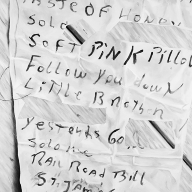 TASTE OF HONEY
Solo
SOFT PINK Pillo
Follow You dowN
Little BROTHER
Yesterday's Go
Solo
RAIL ROAD Bill
St. James